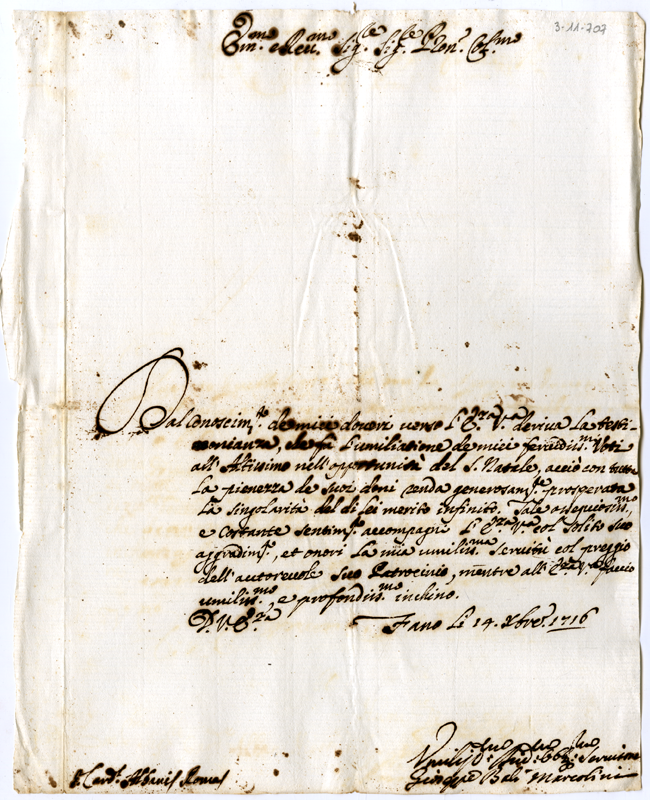 3-11-207
Em.mo e Reu.mo Sig.re Sig.re Pron.e Col.mo
Dal Conoscim.to de miei doueri verso l'E.za V.ra deriua la testi-
monianza, che fà l'umiliatione de miei feruidiss.mi Voti
all'Altissimo nell'opportunità del S. Natale, acciò con tutta
la pienezza de suoi doni renda generosam.te prosperata
la singolarità del di lei merito infinito. Tale ossequiosiss.mo,
e Costante sentim.to accompagni l'E.za V.ra col solito suo
aggradim.to, et onori la mia umiliss.ma Seruitù col preggio
dell'autoreuole suo Patrocinio, mentre all'E.za V.ra faccio
umiliss.mo e profondiss.mo inchino.
D. V. E.za
Fano li 14. Xbre 1716
Umiliss.mo Deu.mo Obb.mo Seruitore
Giuseppe Balì Marcolini
S. Card. Albani Roma